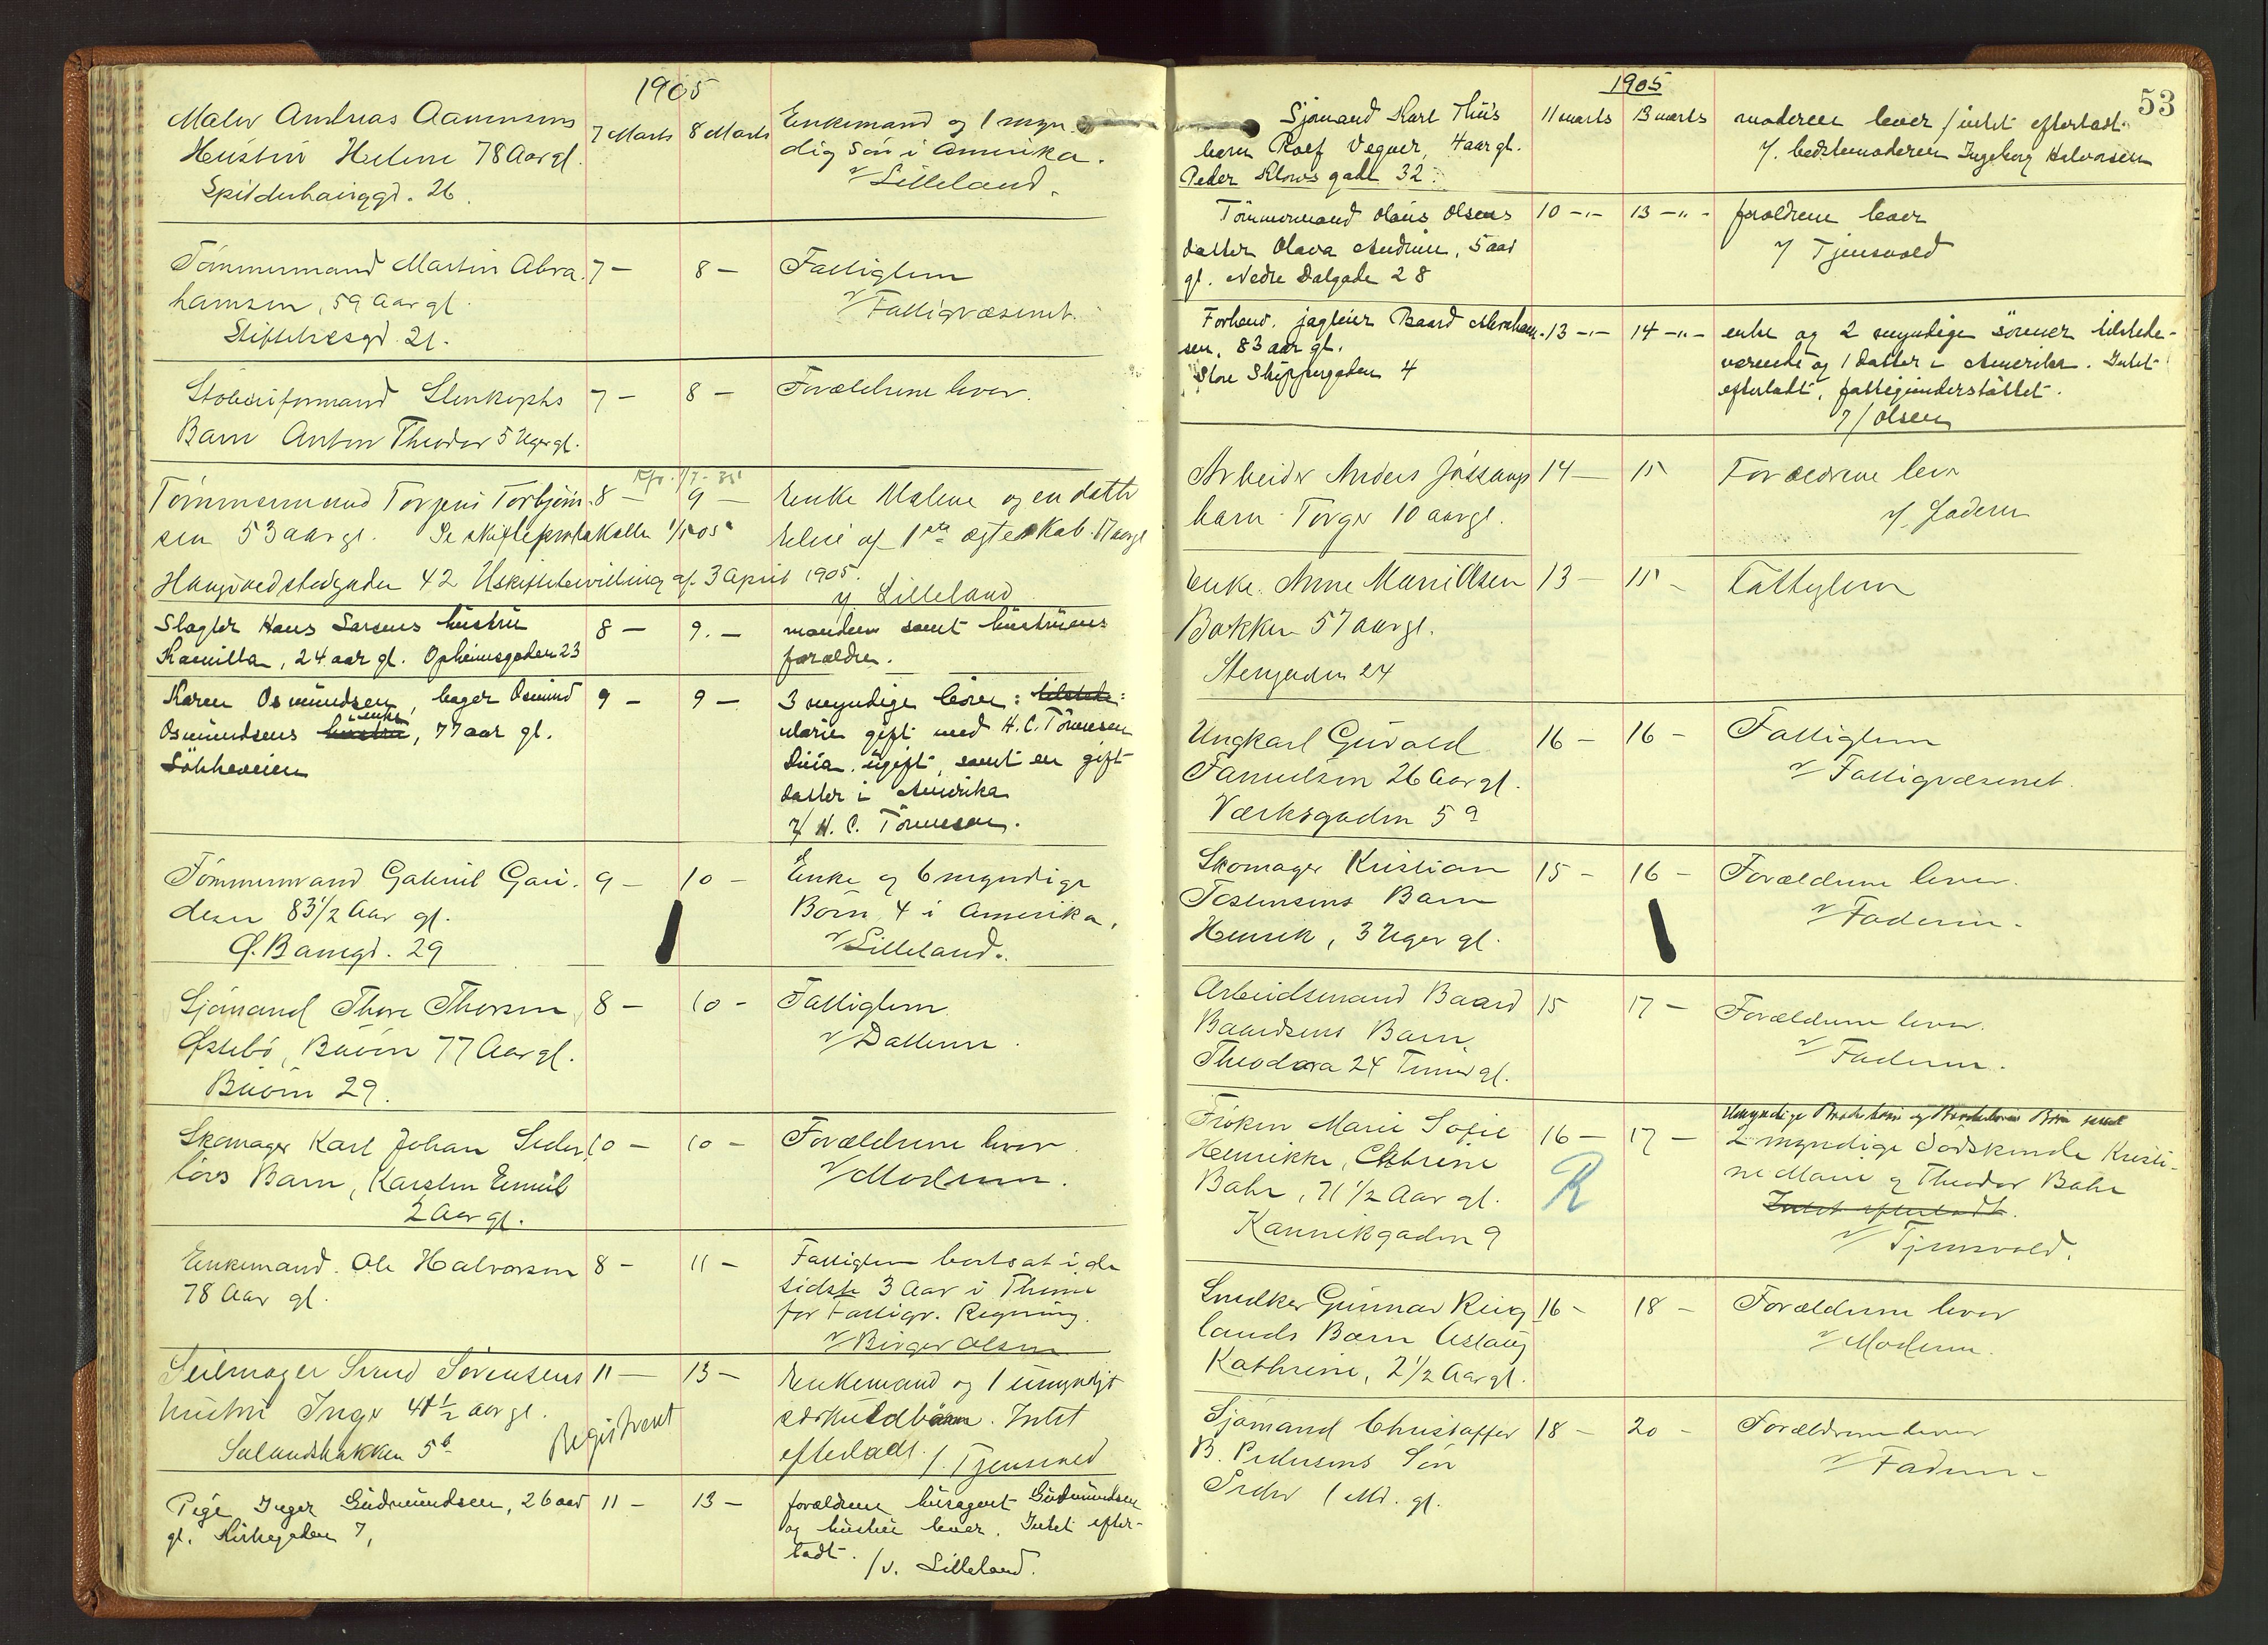 1905
Maler Andreas Aanensens 7 Marts 8 Marts Enkemand og 1 myn-
Hustru Helene 78 Aar gl. dig Sön i Amerika.
Spilderhauggd. 26. v/ Lilleland.
Tömmermand Martin Abra- 7 — 8 — Fattiglem
hamsen, 59 Aar gl. v/ Fattigvæsenet.
Stiftelsesgd. 21.
Stöberiformand Stenkophs 7 — 8 — Forældrene lever.
Barn Anton Theodor 5 Uger gl.
Tömmermand Torjens Torbjörn- 8 — 9 — Enke Malene og en datter
sen 53 aar gl. Se skifteprotokollen 1/5 05 Eline af 1ste ægteskab 17 aar gl
Haugvaldstadgaden 42 Uskiftebevilling af 3 April 1905.
v/ Lilleland
Slagter Hans Larsens hustru 8 — 9. — manden samt hustruens
Kamilla, 24 aar gl. Opheimsgaden 23 forældre.
Karen Osmundsen, bager Osmund 9 — 9 — 3 myndige börn: tilstede:
Osmundsens hustru enke, 77 aar gl. Marie gift med H. C. Tönnesen
Lökkeveien Dina, ugift, samt en gift
datter i Amerika
v/ H. C. Tönnesen.
Tömmermand Gabriel Gau- 9 — 10 — Enke og 6 myndige
desen 83 1/2 Aar gl. Börn, 4 i Amerika.
Ø. Banegd. 29 v/ Lilleland.
Sjömand Thore Thorsen 8 — 10 — Fattiglem
Østebö, Buöen 77 Aar gl. v/ Datteren.
Buöen 29.
Skomager Karl Johan Seder- 10 — 10 — Forældrene lever.
lövs Barn, Karsten Emil v/ Moderen.
2 Aar gl.
Enkemand Ole Halvorsen 8 — 11 — Fattiglem bortsat i de
78 Aar gl. sidste 3 Aar i Thime
for Fattigv. Regning.
v/ Birger Olsen
Seilmager Svend Sörensens 11 — 13 — Enkemand og 1 umyndigt
hustru Inger 41 1/2 aar gl. særkuldbarn. Intet
Sulandsbakken 5 b Registreret efterladt. /. Tjensvold
Pige Inger Gudmundsen, 26 aar 11 — 13 — forældrene husagent Gudmundsen
gl. Kirkegaden 7, og hustru lever. Intet efter-
ladt. /v. Lilleland.
1905 53
Sjömand Karl Thu's 11 marts 13 marts moderen lever / intet efterladt
barn Rolf Vegner, 4 aar gl. v/. bedstemoderen Ingeborg Halvorsen
Peder Klows gade 32.
Tömmermand Olaus Olsens 10 —"— 13 —"— forældrene lever
datter Olava Andrine, 5 aar v/ Tjensvold
gl. Nedre Dalgade 28
Forhenv. jagteier Baard Abraham- 13 —"— 14 —"— enke og 2 myndige sönner tilstede-
sen, 83 aar gl. værende og 1 datter i Amerika. Intet
Store Skippergaden 4 efterladt, fattigunderstöttet.
v/ Olsen
Arbeider Anders Jössangs 14 — 15 Forældrene lever
barn Torger 10 aar gl. v/ faderen
Enke Anne Marie Olsen 13 — 15 — Fattiglem
Bakken 57 aar gl.
Stengaden 24
Ungkarl Guvald 16 — 16 — Fattiglem
Samuelsen 26 Aar gl. v/ Fattigvæsenet.
Værksgaden 5 a
Skomager Kristian 15 — 16 — Forældrene lever.
Tostensens Barn v/ Faderen.
Henrik, 3 Uger gl.
Arbeidsmand Baard 15 17 — Forældrene lever.
Baardsens Barn v/ Faderen.
Theodora 24 Timer gl.
Fröken Marie Sofie 16 — 17 — Umyndige Broderbörn og Broderbörns Börn samt
Henrikke, Cathrine R 2 myndige Södskende Kristi-
Bahr, 71 1/2 Aar gl. ne Marie og Theodor Bahr
Kannikgaden 9 Intet efterladt.
v/ Tjensvold.
Snedker Gunnar Reig- 16 — 18 — Forældrene lever
lands Barn Aslaug v/ Moderen.
Kathrine, 2 1/2 Aar gl.
Sjömand Christoffer 18 — 20 — Forældrene lever
B. Pedersens Sön v/ Faderen
Peder 1 Md. gl.